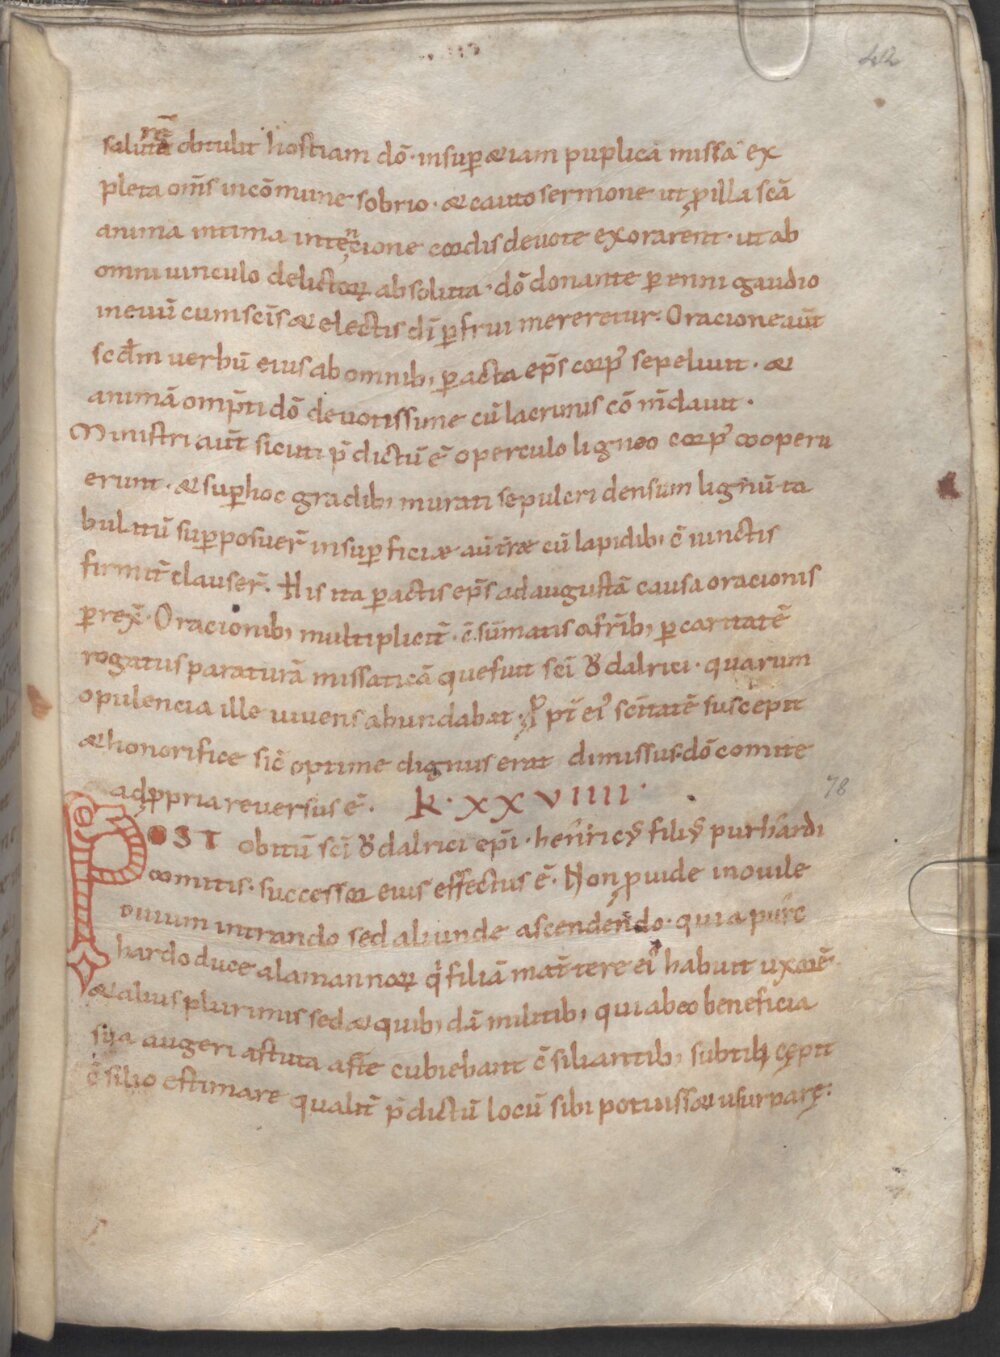 42
salutarē obtulit hostiam dō · insup &iam puplicā missā ex
pleta om̄s incōmune sobrio · & cauto sermone ut ꝓ illa sc̄a
anima intima intęncione cordis devote exorarent · ut ab
omni vinculo delictorꝝ absoluta · dō donante ꝑenni gaudio
inevū cum sc̄is & electis dī ꝑfrui mereretur · Oracione aūt
scd̄m verbū eius ab omnibꝫ ꝑacta ep̄s corpꝰ sepelivit · &
animā om̄pti dō devotissime cū lacrimis cōm̄davit ·
Ministri aūt sicuti p̄dictū ē operculo ligneo corpꝰ cooperu
erunt · & suꝑ hoc gradibꝫ murati sepulcri densum lignū ta
bulatū suꝑposuer̄ insuꝑficiæ aū t̄ræ cū lapidibꝫ c̄iunctis
firmit̄ clauser̄. His ita ꝑactis ep̄s ad augustā causa oracionis
ꝑrex̄ · Oracionibꝫ multiplicit̄ · c̄sūmatis a fr̄ibꝫ ꝑ caritatē
rogatus paraturā missaticā que fuit sc̄i Ȣdalrici · quarum
opulencia ille vivens abundabat ꝓpt̄ eiꝰ sc̄itatē suscepit
& honorifice sic̄ optime dignus erat dimissus dō comite
ad ꝓpria reversus ē. K · XXVIIII ·
78
POST obitū sc̄i Ȣdalrici ep̄i · heinricꝰ filiꝰ purhardi
comitis · successor eius effectus ē · Non ꝓvide in ovile
ovium intrando sed aliunde ascendendo · quia purc
hardo duce alamannorꝝ q̄ filiā mat̄tere eiꝰ habuit uxorē ·
& aliis plurimis sed & quibꝫdā militibꝫ qui ab eo beneficia
sua augeri astuta aste cubiebant c̄siliantibꝫ subtili cępit
c̄silio estimare qualit̄ p̄dictū locū sibi potuiss& usurparę ·